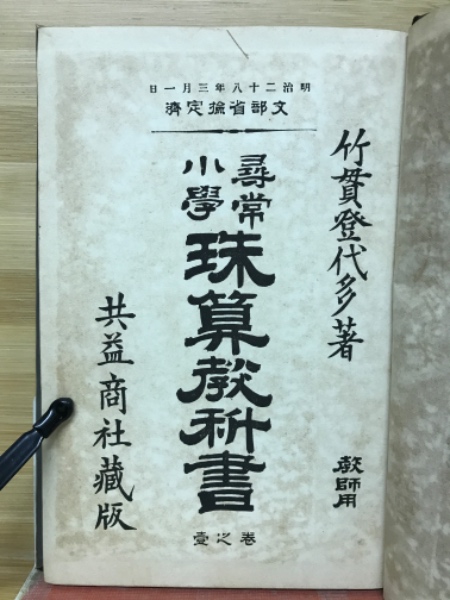 明治二十八年三月一日
文部省檢定濟
竹貫登代多著
教師用
尋常
小學
珠算教科書
卷之壹
共益商社藏版